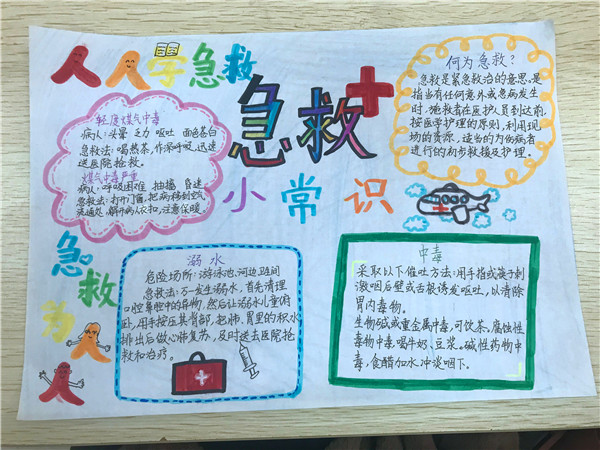 人人学急救
急救
小常识
急救为人人
轻度煤气中毒
病人：头晕 乏力 呕吐 面色苍白
急救法：喝热茶，作深呼吸，迅速
送医院抢救。
煤气中毒严重
病人：呼吸困难 抽搐 昏迷
急救法：打开门窗，把病人移到空气
流通处，解开病人衣扣，注意保暖。
何为急救？
急救是紧急救治的意思，是
指当有任何意外或急病发生
时，施救者在医护人员到达前，
按医学护理的原则，利用现
场的资源，适当的为伤病者
进行的初步救援及护理。
溺水
危险场所：游泳池、河边、卫生间
急救法：万一发生溺水，首先清理
口腔鼻腔中的异物，然后让溺水儿童俯
卧，用手按压其背部，把肺、胃里的积水
排出后做心肺复苏，及时送去医院抢
救和治疗。
中毒
采取以下催吐方法：用手指或筷子刺
激咽后壁或舌根诱发呕吐，以清除
胃内毒物。
生物碱或重金属中毒，可饮茶，腐蚀性
毒物中毒喝牛奶、豆浆。碱性药物中
毒，食醋加水冲淡咽下。